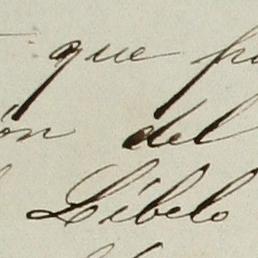 que
ón del
Líbelo